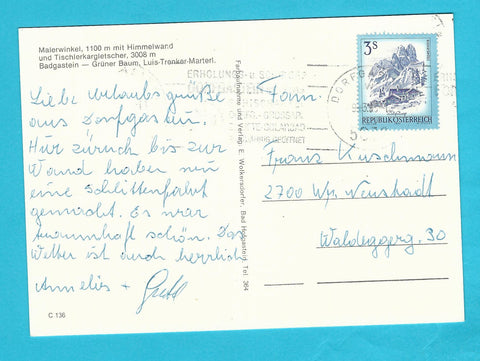 Malerwinkel, 1100 m mit Himmelwand
und Tischlerkargletscher, 3008 m
Badgastein — Grüner Baum, Luis-Trenker-Marterl.
Liebe Urlaubsgrüße
aus Dorfgastein.
Hin zurück bis zur
Wand haben wir
eine Schlittenfahrt
gemacht. Es war
traumhaft schön. Das
Wetter ist auch herrlich
Annelies +
C 136
Farbaufnahme und Verlag E. Wolkersdorfer, Bad Hofgastein, Tel. 364
ERHOLUNG u.
GEÖFFNET
DORFG
3 S
REPUBLIK ÖSTERREICH
Fam.
Franz Kuschmann
2700 Wr. Neustadt
Waldeggerg. 30